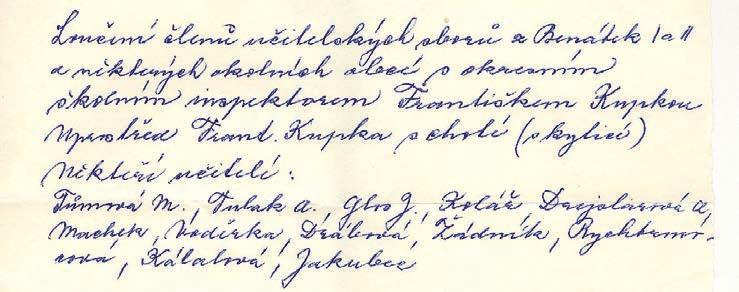 Loučení členů učitelských sborů z Benátek I a II
a některých okolních obcí s okresním
školním inspektorem Františkem Kupkou
Uprostřed Frant. Kupka s chotí (s kyticí)
Někteří učitelé:
Tůmová M., Tulak A. Glos J., Kolář A,
Machek, Vodička, Drábová, Žádník, Rychtrmo-
cova, Kálalová, Jakubec